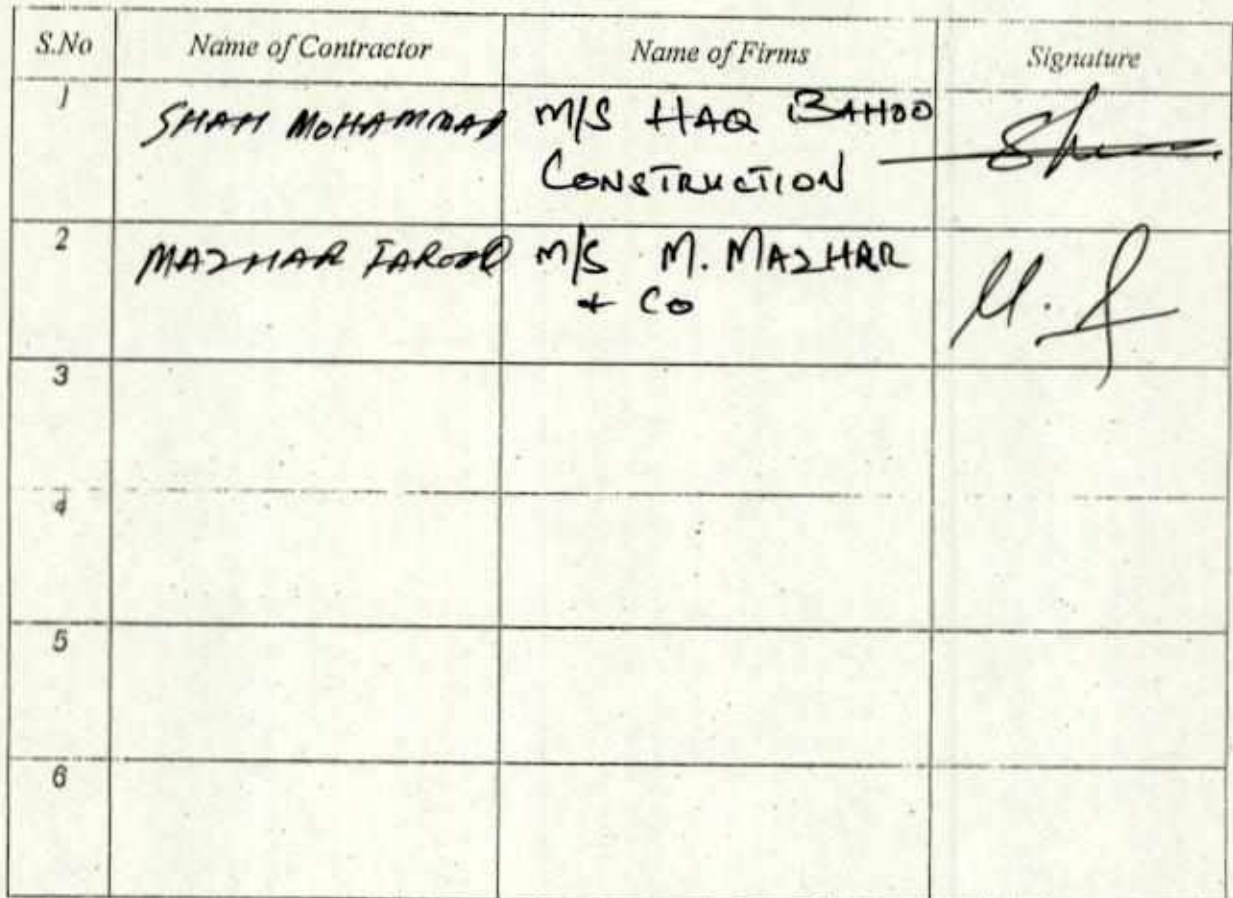 S.No Name of Contractor Name of Firms Signature
1 SHAH MOHAMMAD M/S HAQ BAHOO
CONSTRUCTION
2 MAZHAR FAROOQ M/S M. MAZHAR
+ Co
M. f
3
4
5
6